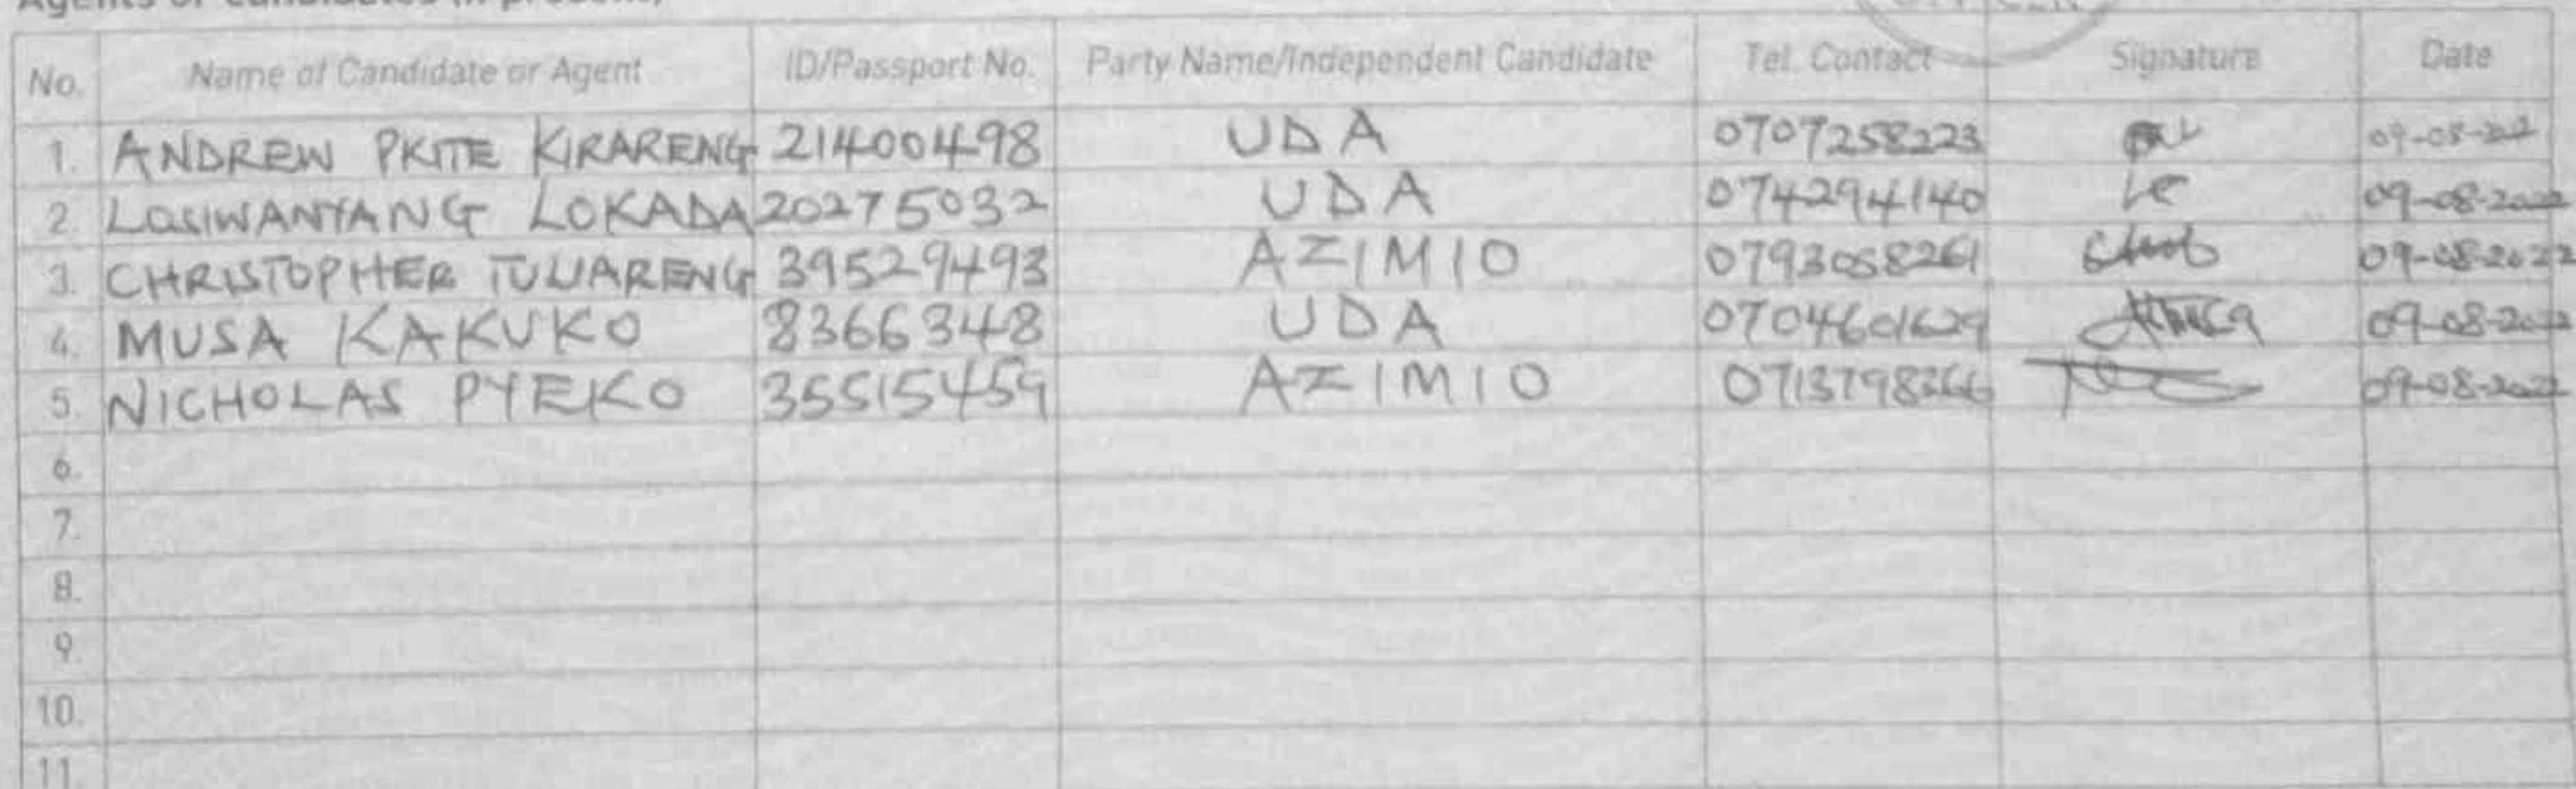 Agents or Candidates (if present)
No. Name of Candidate or Agent ID/Passport No. Party Name/Independent Candidate Tel. Contact Signature Date
1. ANDREW PKITE KIRARENG 21400498 UDA 0707258223 09-08-22
2. LOSIWANYANG LOKADA 20275032 UDA 0742941140 09-08-2022
3. CHRISTOPHER TULIARENG 39529493 AZIMIO 0793058261 09-08-2022
4. MUSA KAKUKO 8366348 UDA 0704601629 09-08-2022
5. NICHOLAS PYEKO 35515459 AZIMIO 0713798266 09-08-2022
6.
7.
8.
9.
10.
11.